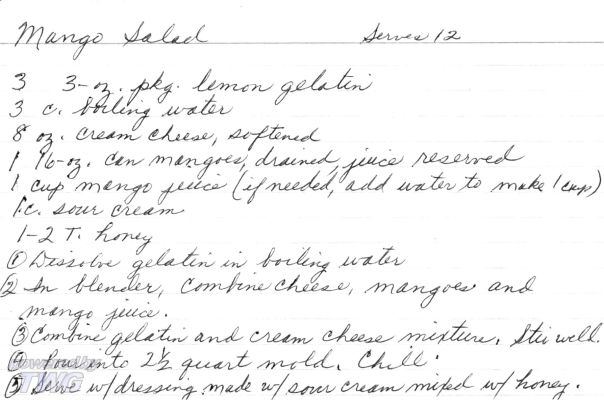 Mango Salad Serves 12
3 3-oz. pkg. lemon gelatin
3 c. boiling water
8 oz. cream cheese, softened
1 16-oz. can mangoes, drained, juice reserved
1 cup mango juice (if needed, add water to make 1 cup)
1 c. sour cream
1-2 T. honey
① Dissolve gelatin in boiling water
② In blender, combine cheese, mangoes and
mango juice.
③ Combine gelatin and cream cheese mixture. Stir well.
④ Pour into 2½ quart mold. Chill.
⑤ Serve w/dressing made w/ sour cream mixed w/ honey.
TWG